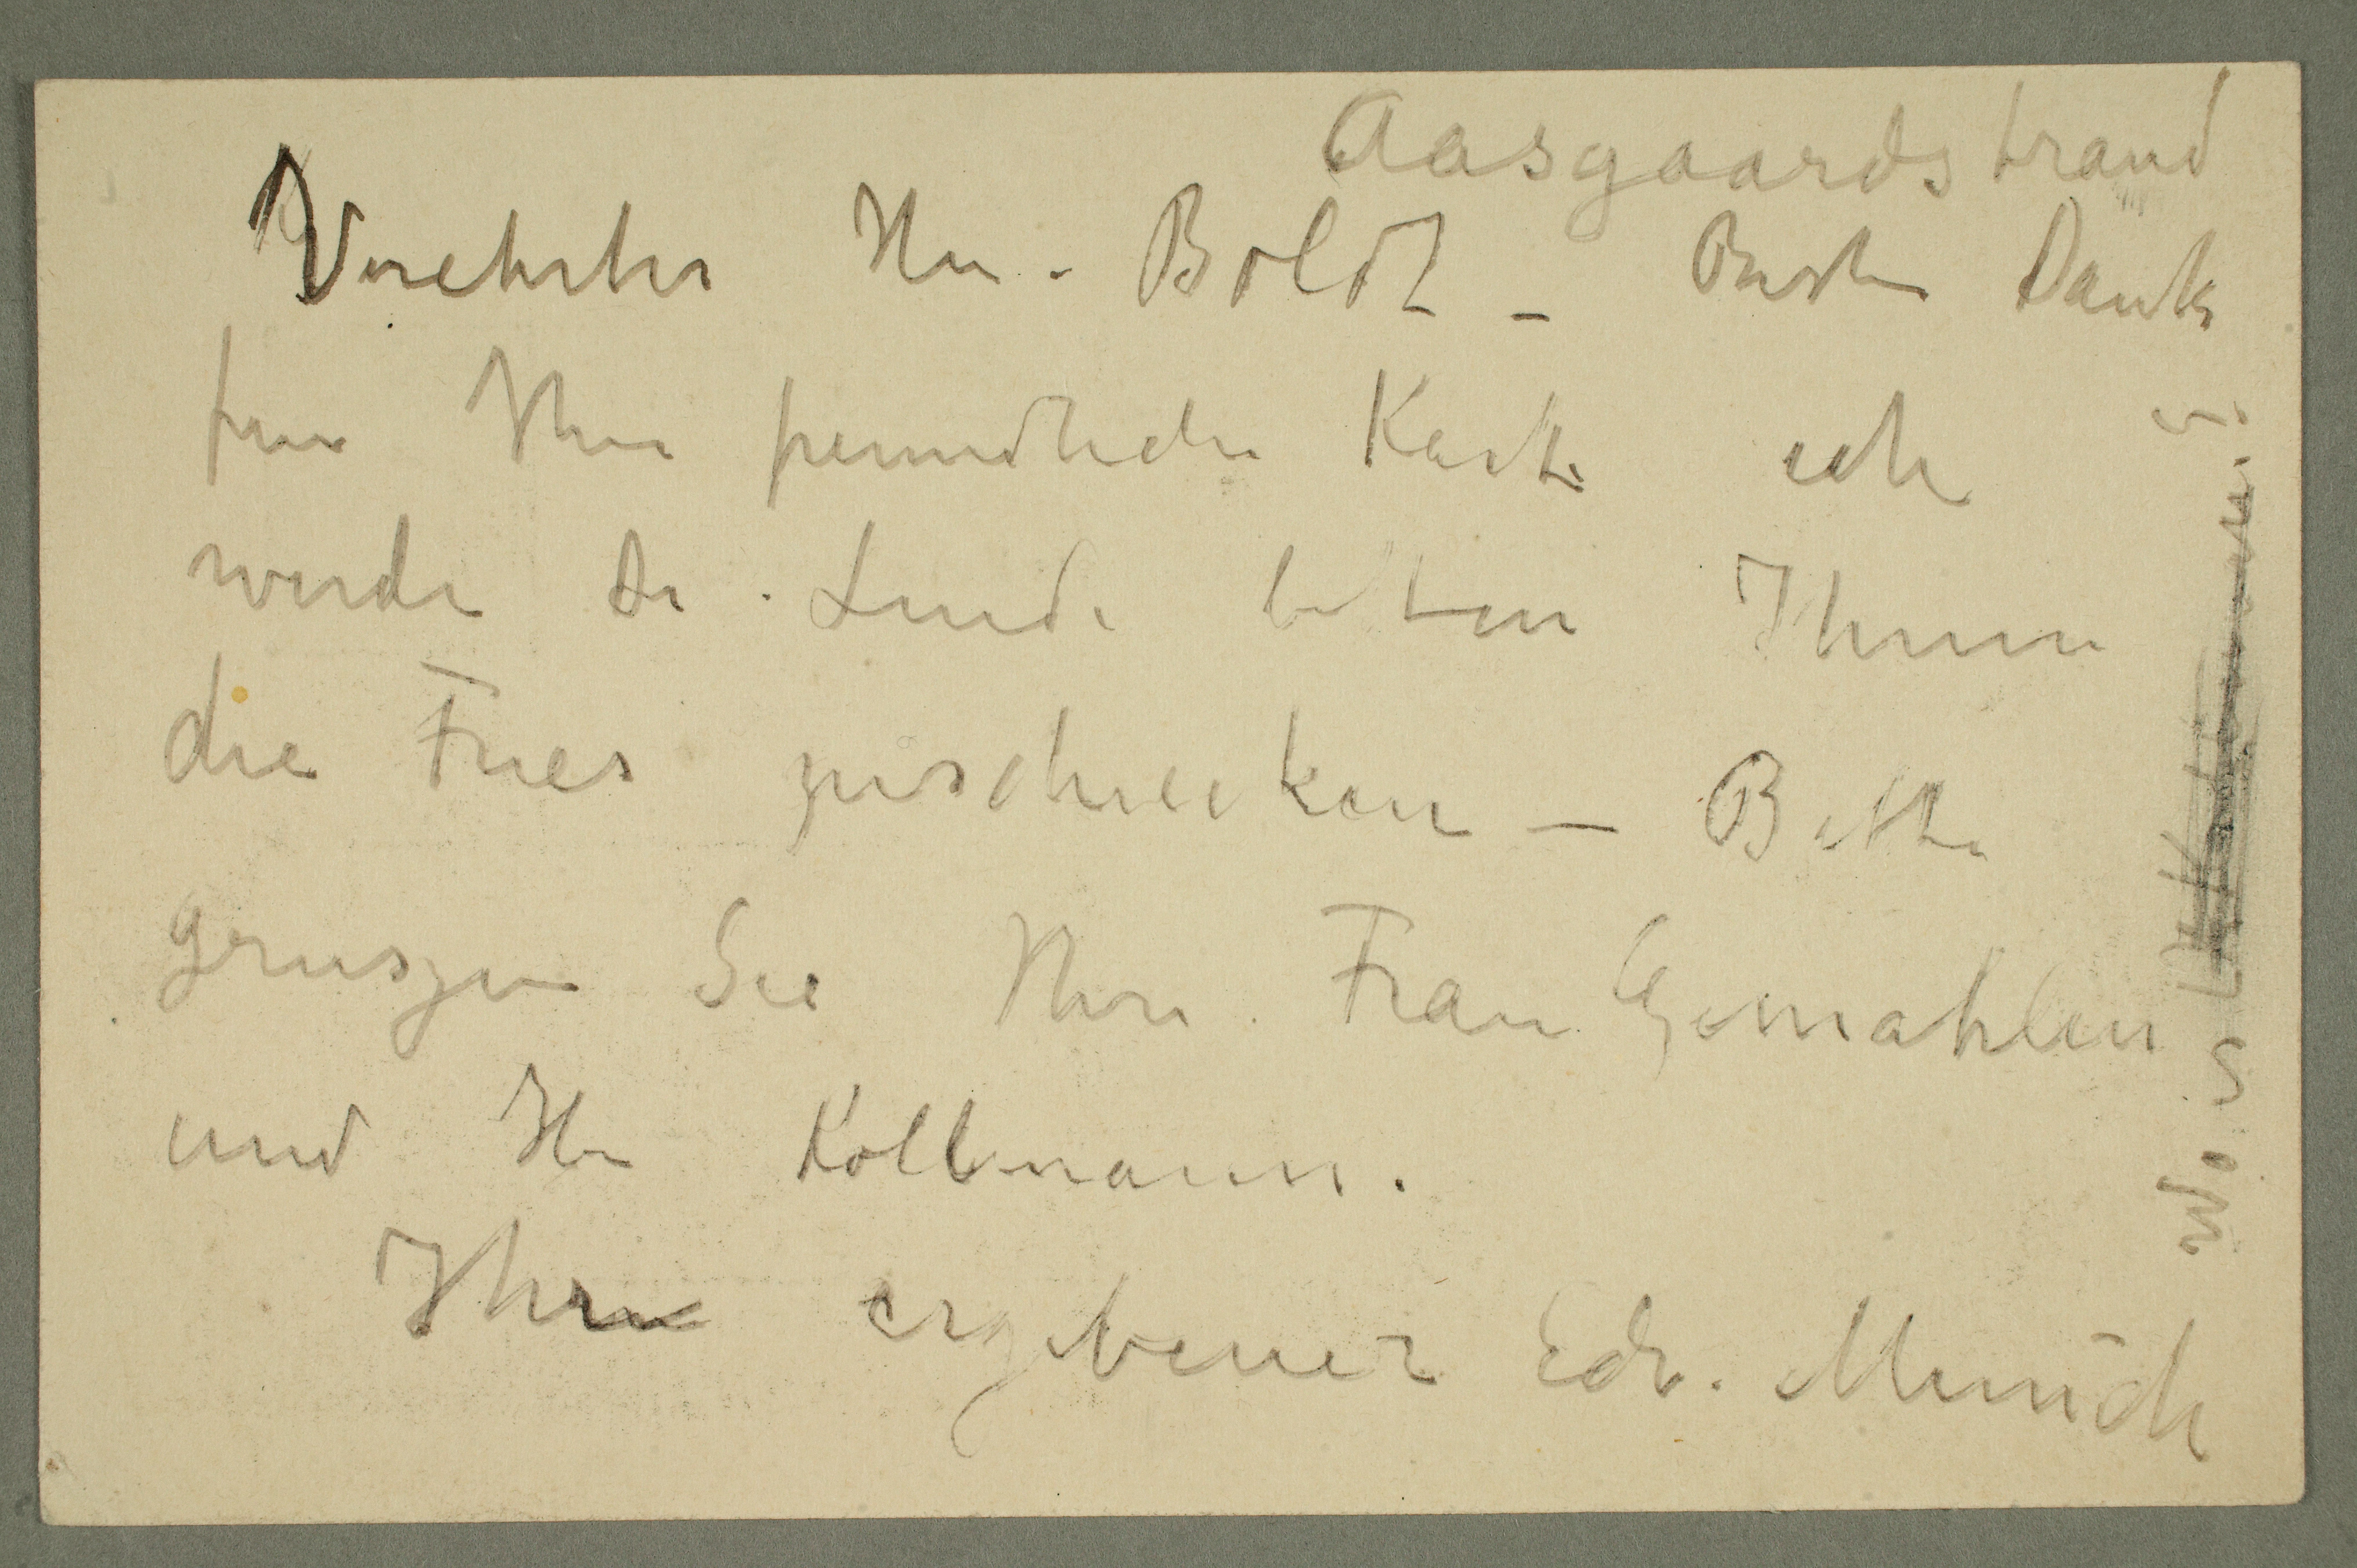 Aasgaardstrand
Verehrter Herr. Boldt – Besten Dank
fur Ihre freundliche Karte ich
werde Dr. Linde bitten Ihnen
die Fries zuschicken – Bitte
gruszen Sie Ihre Frau Gemahlin
und Her Kollmann.
Ihr ergebener Edv. Munch
Wo